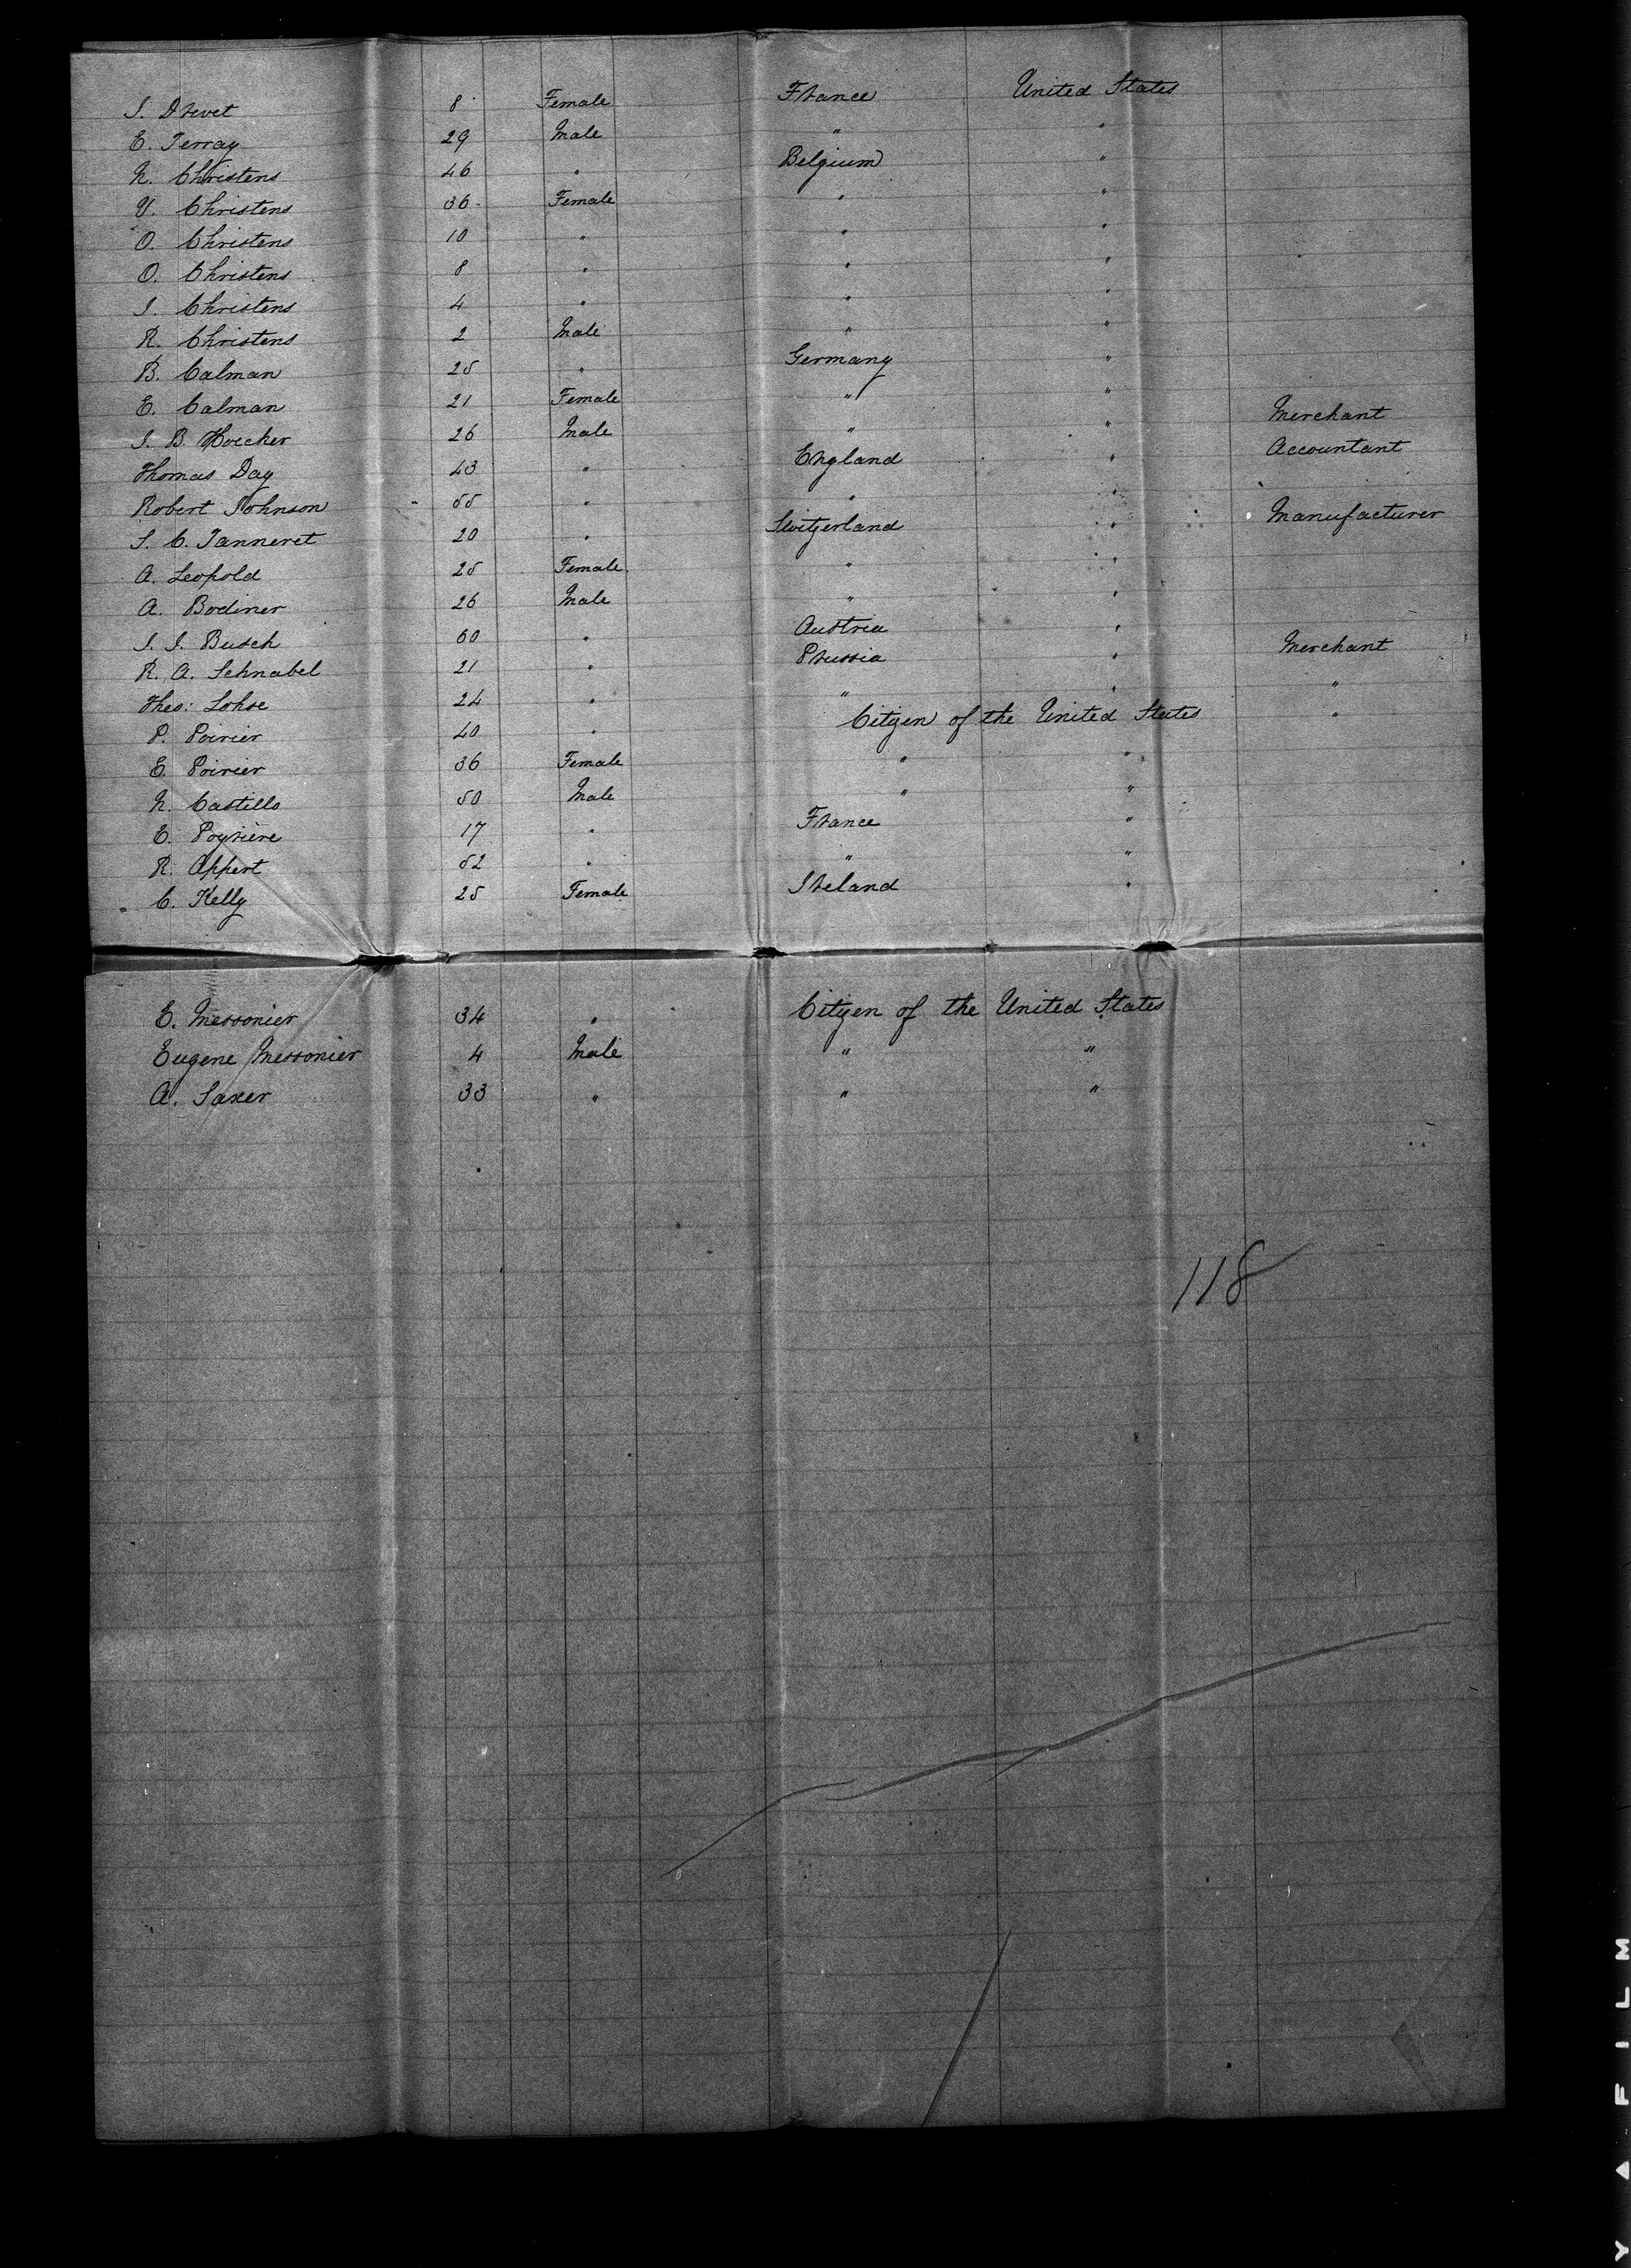 J. Drevet 8 Female France United States
E. Terray 29 Male " "
N. Christens 46 " Belgium "
V. Christens 36 Female " "
O. Christens 10 " " "
O. Christens 8 " " "
J. Christens 4 " " "
R. Christens 2 Male " "
B. Calman 25 " Germany "
E. Calman 21 Female " "
J. B. Hoecher 26 Male " " Merchant
Thomas Day 43 " England " Accountant
Robert Johnson 55 " " "
S. C. Janneret 20 " Switzerland " Manufacturer
A. Leopold 25 Female " "
A. Bodiner 26 Male " "
J. J. Busch 60 " Austria "
R. A. Schnabel 21 " Prussia " Merchant
Theo: Lohse 24 " " " "
P. Poirier 40 " Citizen of the United States "
E. Poirier 36 Female " "
N. Castillo 50 Male " "
E. Poyriere 17 " France "
R. Appert 52 " " "
C. Kelly 25 Female Ireland "
E. Messonier 34 " Citizen of the United States
Eugene Messonier 4 Male " "
A. Saxer 33 " " "
118